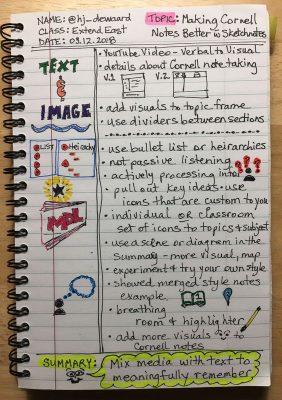 NAME: @hj-dewaard
CLASS: Extend East
DATE: 03.12.2018
TOPIC: Making Cornell
Notes Better w Sketchnotes
TEXT
IMAGE
LIST
Heirarchy
YouTube Video - Verbal to Visual
details about Cornell note taking
V.1
V.2
add visuals to topic frame
use dividers between sections
use bullet list or heirarchies
not passive listening
actively processing info
pull out key ideas - use
icons that are custom to you
individual or classroom
set of icons to topics + subject
use a scene or diagram in the
summary - more visual, map
experiment & try your own style
showed merged style notes
example
breathing
room & highlighter
add more visuals to
Cornell notes
SUMMARY: Mix media with text to
meaningfully remember